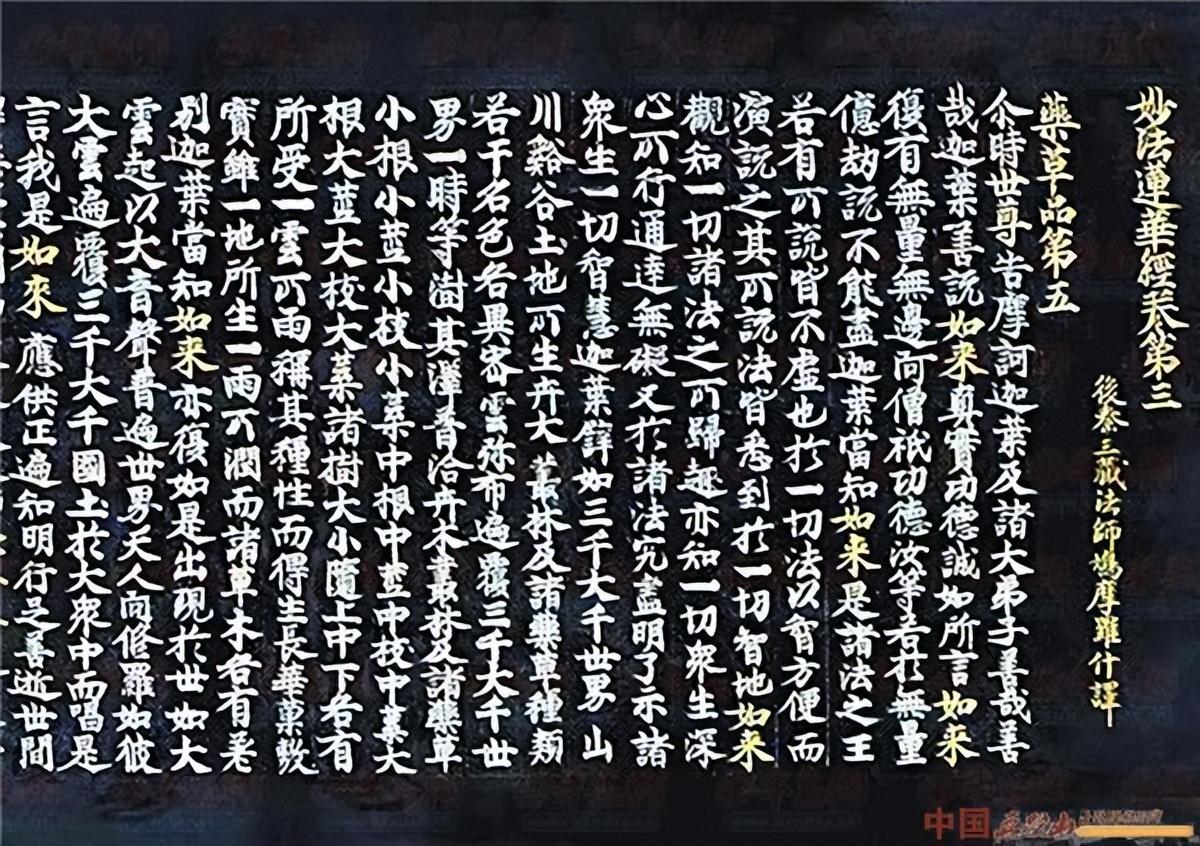 妙法蓮華經卷第三
後秦三藏法師鳩摩羅什譯
藥草品第五
尒時世尊告摩訶迦葉及諸大弟子善哉善
哉迦葉善說如来真實功德誠如所言如来
復有無量無邊阿僧祇功德汝等若於無量
億劫說不能盡迦葉當知如来是諸法之王
若有所說皆不虛也於一切法以智方便而
演說之其所說法皆悉到於一切智地如来
觀知一切諸法之所歸趣亦知一切眾生深
心所行通達無礙又於諸法究盡明了示諸
眾生一切智慧迦葉譬如三千大千世界山
川谿谷土地所生卉木叢林及諸藥草種類
若干名色各異密雲弥布遍覆三千大千世
界一時等澍其澤普洽卉木叢林及諸藥草
小根小莖小枝小葉中根中莖中枝中葉大
根大莖大枝大葉諸樹大小隨上中下各有
所受一雲所雨稱其種性而得生長華菓敷
實雖一地所生一雨所潤而諸草木各有差
別迦葉當知如来亦復如是出現於世如大
雲起以大音聲普遍世界天人阿修羅如彼
大雲遍覆三千大千國土於大眾中而唱是
言我是如來應供正遍知明行足善逝世間
中国